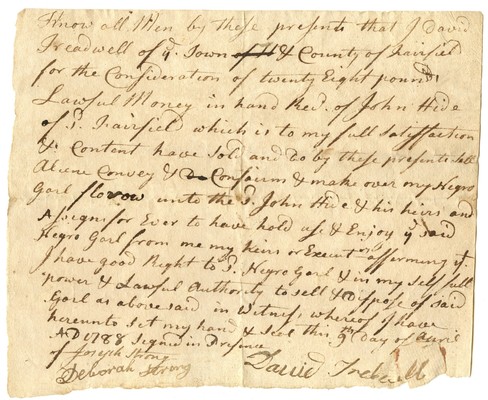 Know all Men by these presents that I David
Treadwell of ye. Town of H & County of Fairfiel
for the Consideration of twenty Eight pound
Lawful Money in hand Recd. of John Hide
of sd. Fairfield which is to my full Satisffaction
& Content have Sold and do by these presents Sell
Aliene Convey & Do Confairm & make over my Negro
Garl unto the sd. John Hide & his heirs and
Assigns for Ever to have hold use & Enjoy ye said
Negro Garl from me my heirs or affirming yt.
I have good Right to sd. Negro Garl & in my Self full
power & Lawful Authority to sell & Dispose of said
Garl as above said in Witness whereof I have
hereunto Set my hand & Seal this 9th day of
AD 1788 Signed in Presence
of Joseph Strong
Deborah Strong
David Tredwell